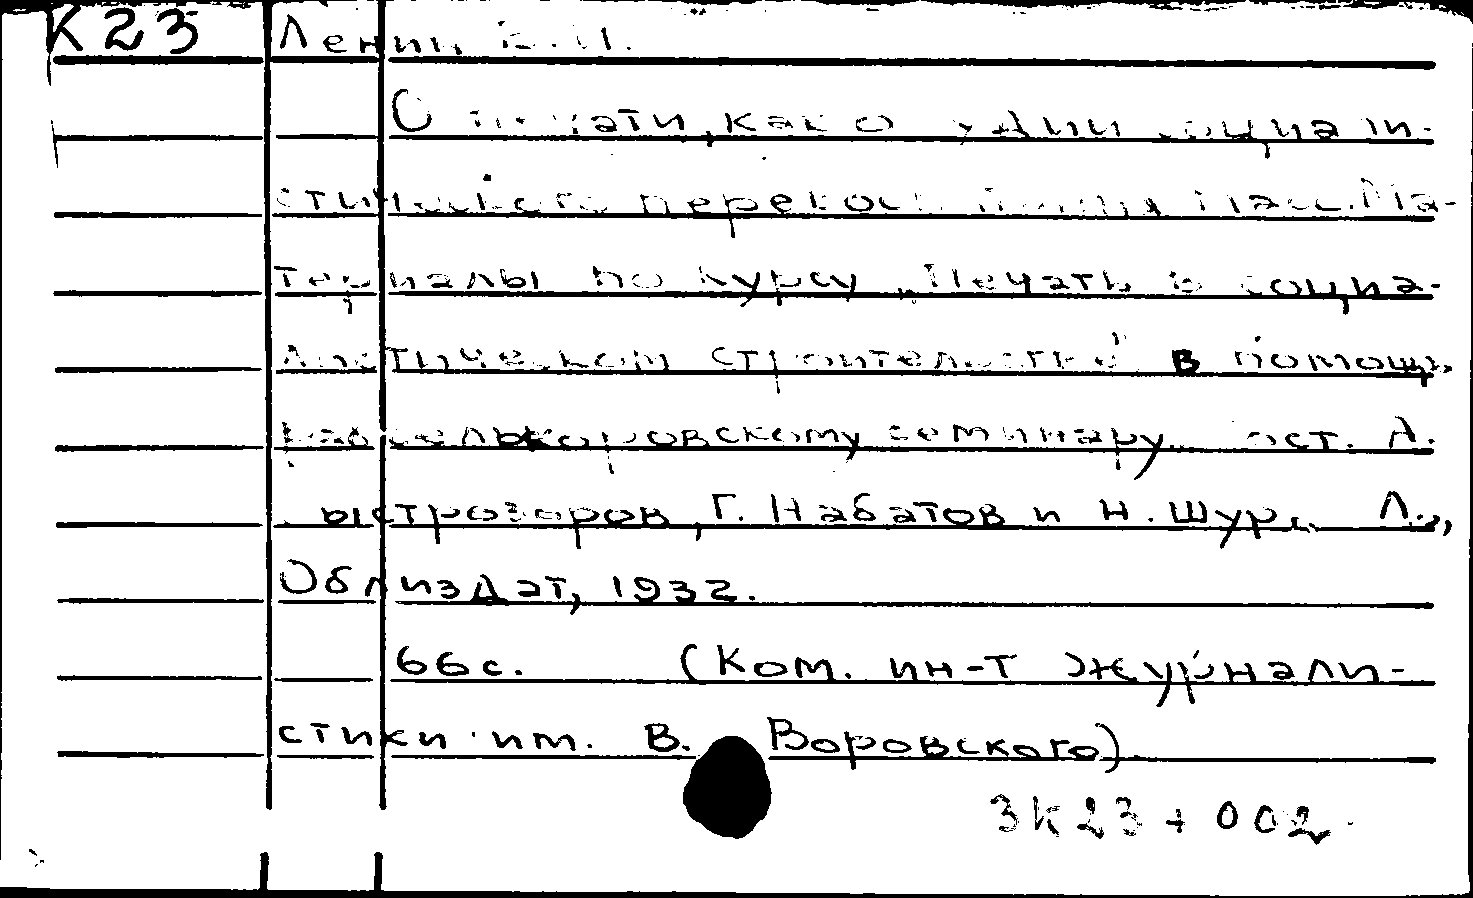 К23 Ленин В.И.
О печати, как орудии социали-
стического перевоспитания масс. Ма-
териалы по курсу „Печать в социа-
листическом строительстве" в помощь
рабселькоровскому семинару. Сост. А.
Быстрозоров, Г. Набатов и Н. Шур. Л.,
Облиздат, 1932.
66 с. (Ком. ин-т журнали-
стики им. В. Воровского)
3К23 + 002